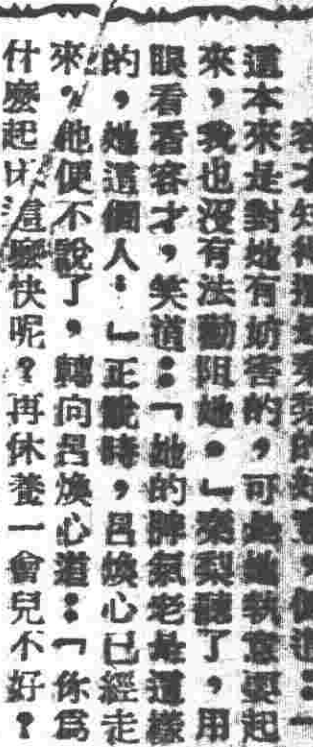 容才知褚揖是棻梨的好意，便道：「
這本來是對她有妨害的，可是她執意要起
來，我也沒有法勸阻她。」棻梨聽了，用
眼看看容才，笑道：「她的脾氣老是這樣
的，她這個人：」正說時，呂煥心已經走
來，他便不說了，轉向呂煥心道：「你爲
什麼起床這麼快呢？再休養一會兒不好？